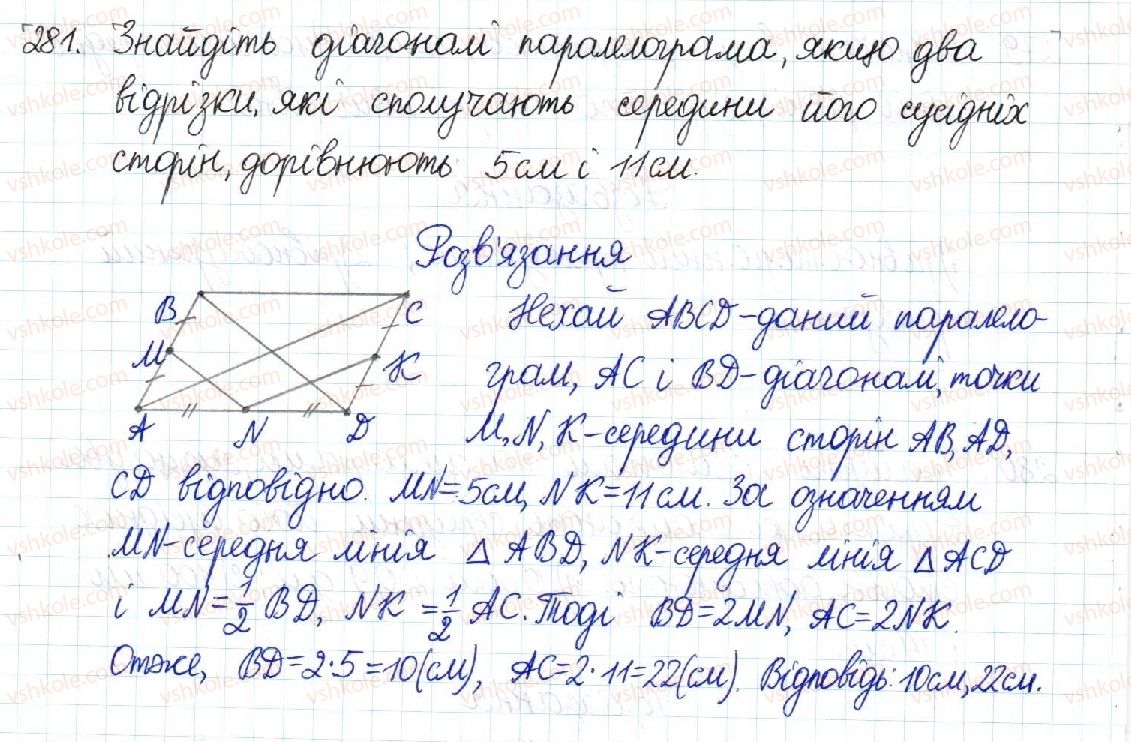 281. Знайдіть діагоналі паралелограма, якщо два
відрізки, які сполучають середини його сусідніх
сторін, дорівнюють 5 см і 11 см.
Розв'язання
B
C
M
K
A
N
D
Нехай ABCD – даний паралело-
грам, AC і BD – діагоналі, точки
M, N, K – середини сторін AB, AD,
CD відповідно. MN = 5 см, NK = 11 см. За означенням
MN – середня лінія △ ABD, NK – середня лінія △ ACD
і MN = 1/2 BD, NK = 1/2 AC. Тоді BD = 2MN, AC = 2NK.
Отже, BD = 2·5 = 10 (см), AC = 2·11 = 22 (см). Відповідь: 10 см, 22 см.
vshkole.com